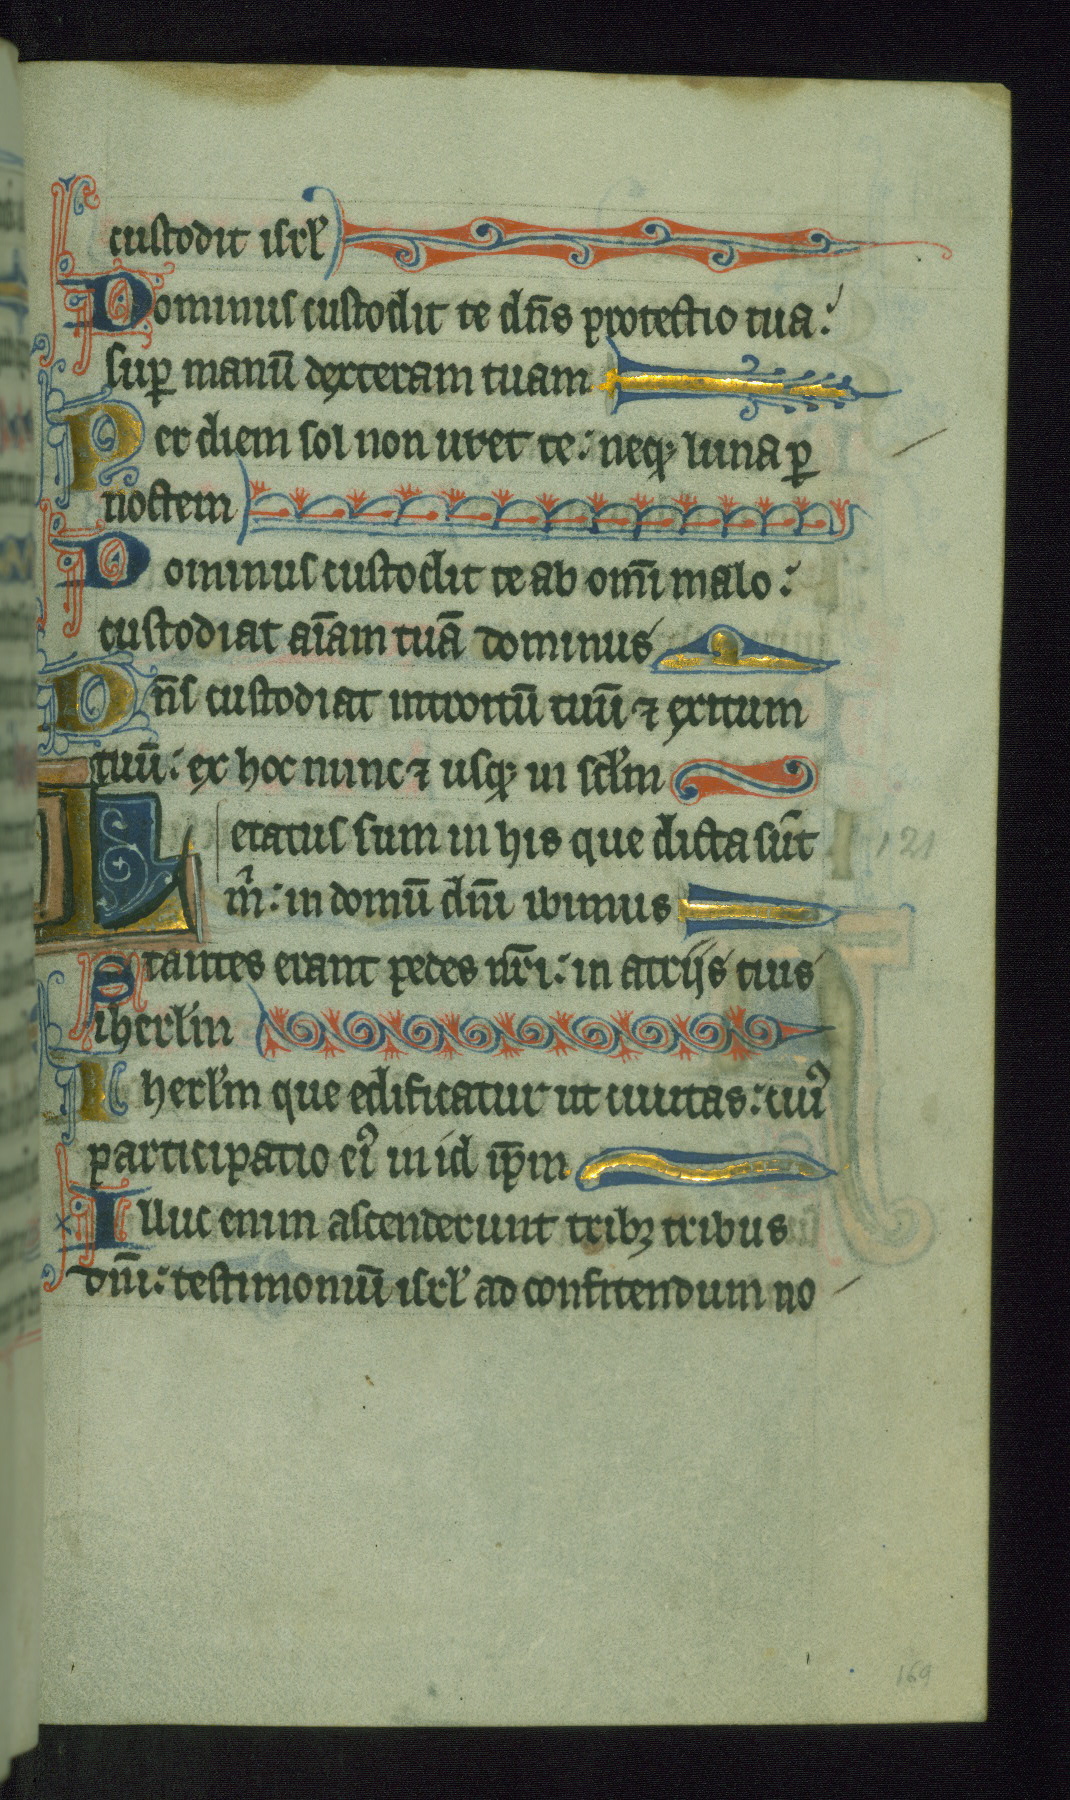 custodit isrl̕
Dominus custodit te dn̄s protectio tua:
suꝑ manū dexteram tuam
Per diem sol non uret te: neqꝫ luna ꝑ
noctem
Dominus custodit te ab om̄i malo:
custodiat aīam tuā dominus
Dn̄s custodiat introitū tuū ⁊ exitum
tuū: ex hoc nunc ⁊ usqꝫ in scl̕m
Letatus sum in his que dicta sūt
m̄: in domū dn̄i ibimus
Stantes erant pedes nr̄i: in atrijs tuis
iherl̕m
Iherl̕m que edificatur ut ciuitas: cuiꝰ
participatio eiꝰ in id ip̄m
Illuc enim ascenderunt tribꝫ tribus
dn̄i: testimoniū isrl̕ ad confitendum no
121
169